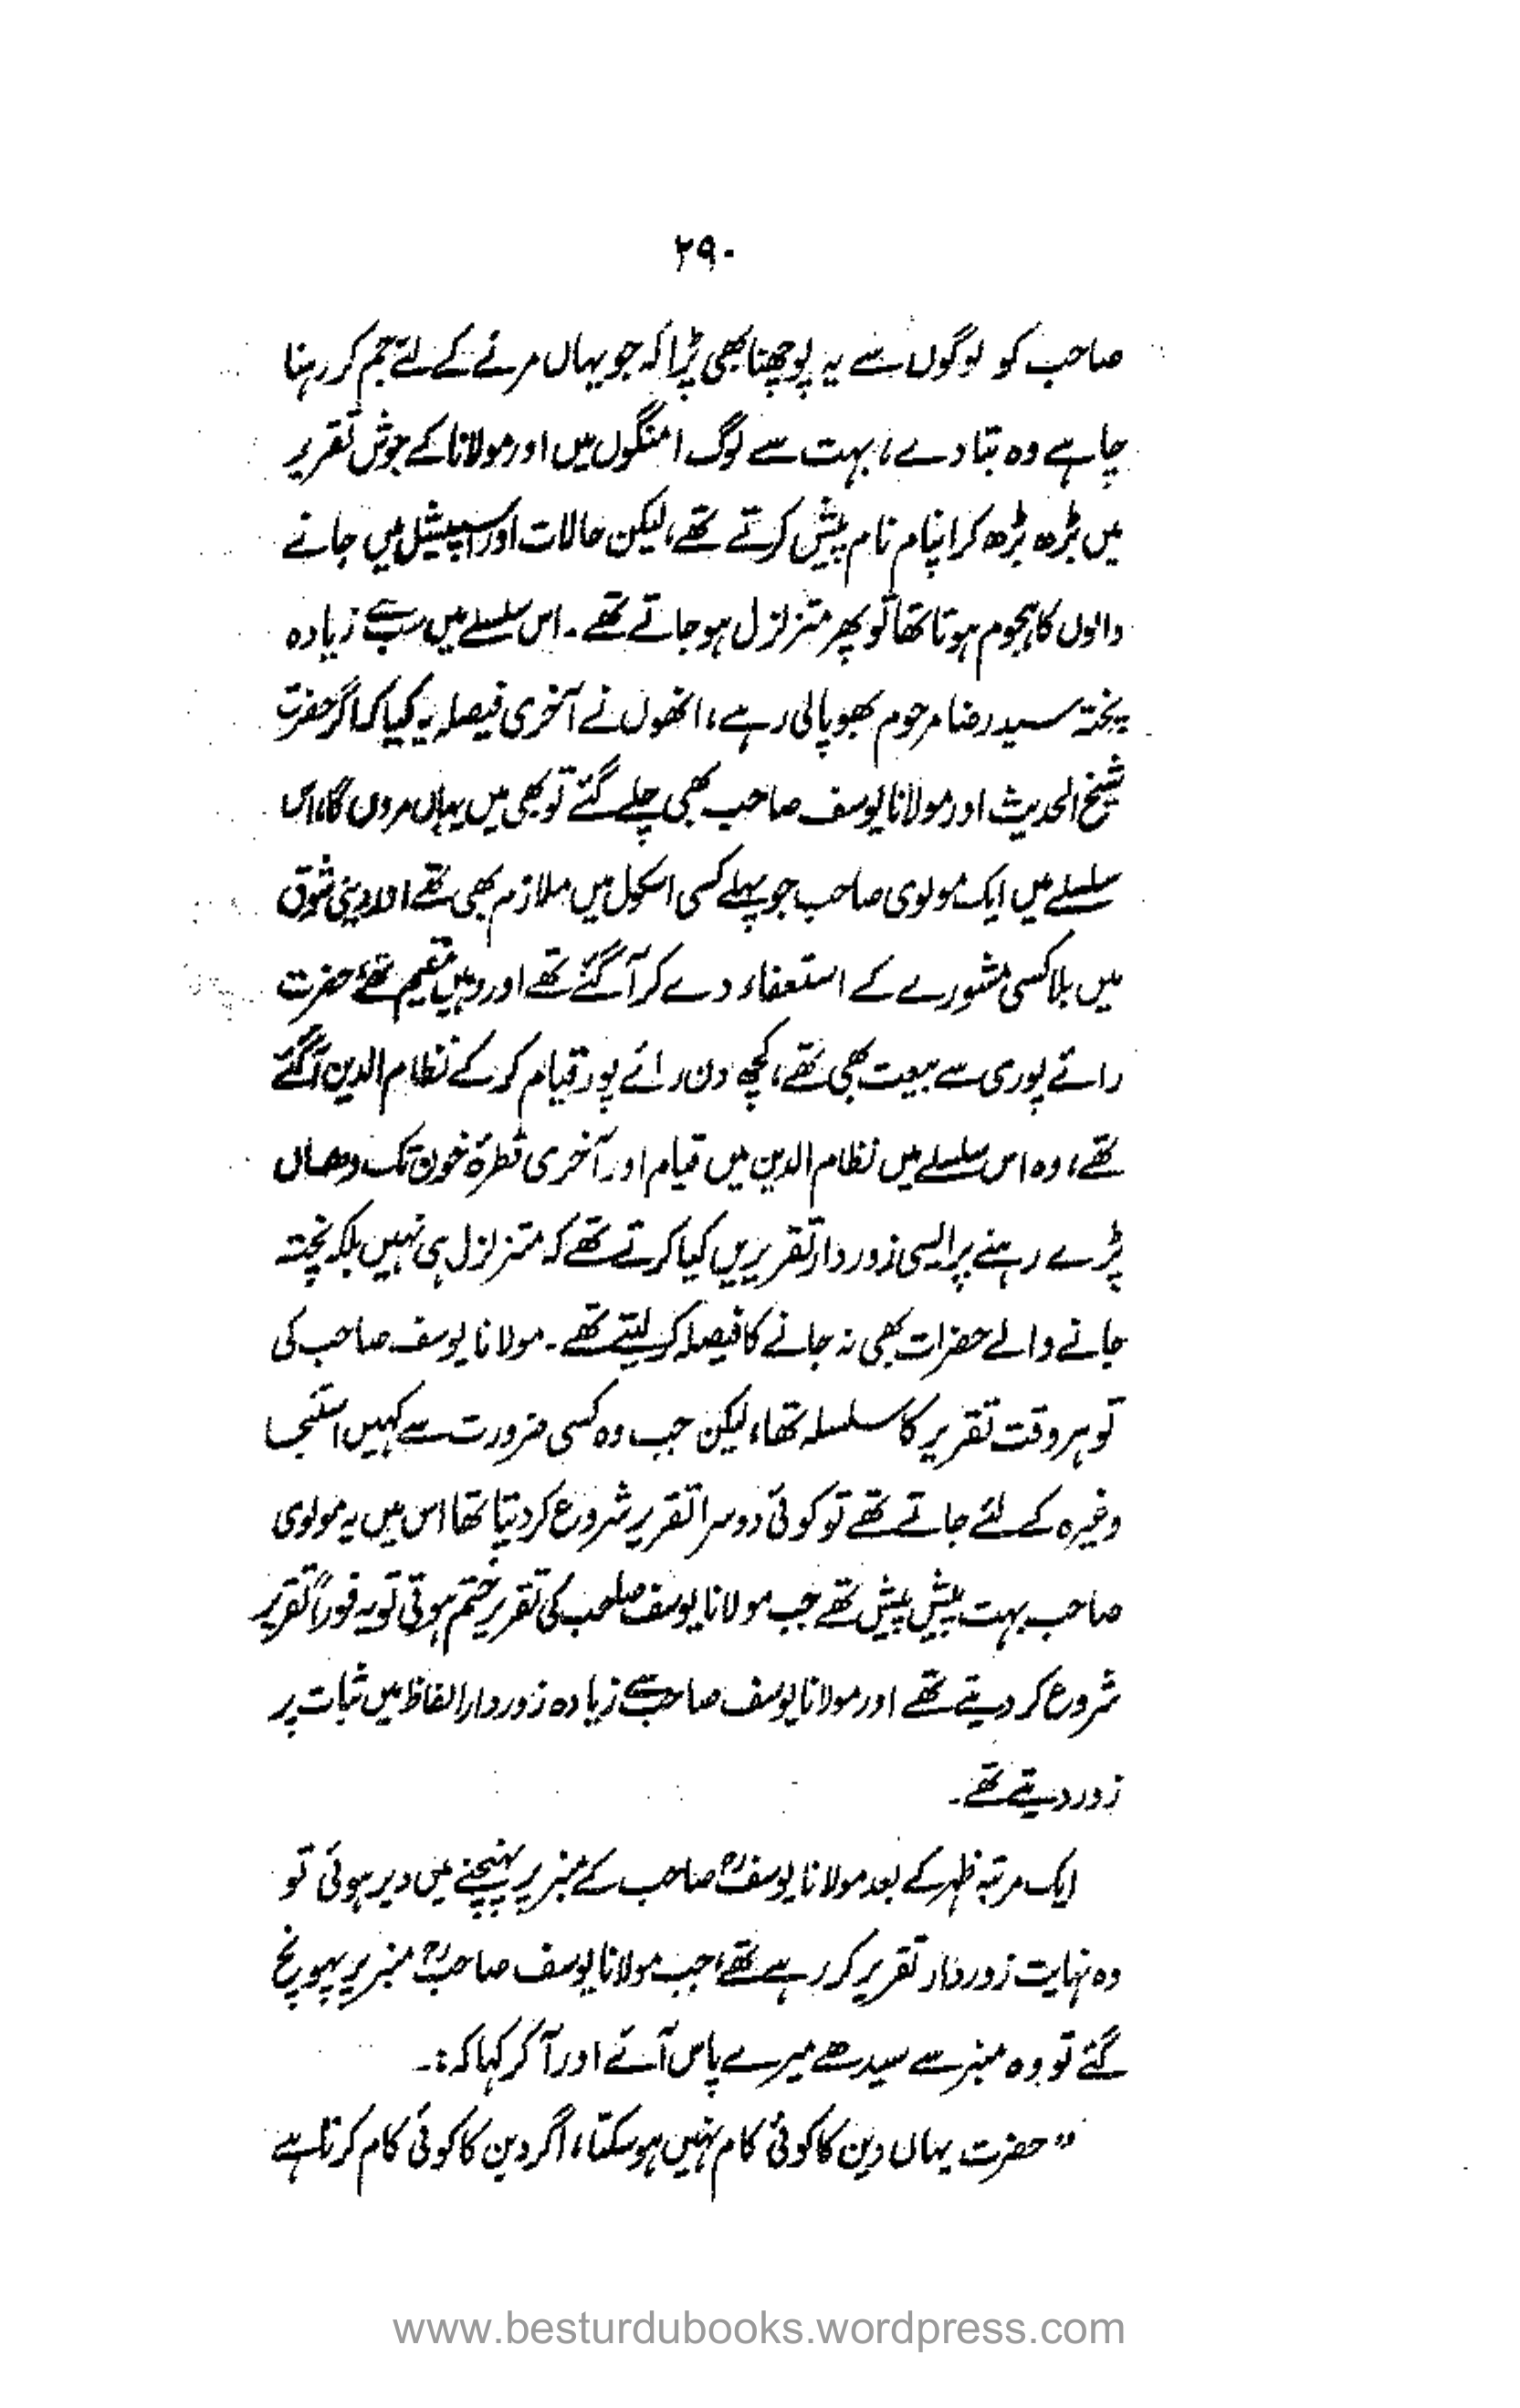 ۲۹۰
صاحب کو لوگوں سے یہ پوچھنا بھی پڑا کہ جو یہاں مرنے کے لئے جم کر رہنا
چاہے وہ بتا دے، بہت سے لوگ امنگوں میں اور مولانا کے جوشِ تقریر
میں بڑھ بڑھ کر اپنا نام پیش کرتے تھے، لیکن حالات اور اسپیشل میں جانے
والوں کا ہجوم ہوتا تھا تو پھر متزلزل ہو جاتے تھے۔ اس سلسلے میں سب سے زیادہ
پختہ سید رضا مرحوم بھوپالی رہے، انھوں نے آخری فیصلہ یہ کیا کہ اگر حضرت
شیخ الحدیث اور مولانا یوسف صاحب بھی چلے گئے تو بھی میں یہاں مروں گا، اس
سلسلے میں ایک مولوی صاحب جو پہلے کسی اسکول میں ملازم بھی تھے اور دینی شوق
میں بلا کسی مشورے کے استعفاء دے کر آ گئے تھے اور وہیں مقیم تھے، حضرت
رائے پوری سے بیعت بھی تھے، کچھ دن رائے پور قیام کر کے نظام الدین آ گئے
تھے، وہ اس سلسلے میں نظام الدین میں قیام اور آخری قطرۂ خون تک وھاں
پڑے رہنے پر ایسی زوردار تقریریں کیا کرتے تھے کہ متزلزل ہی نہیں بلکہ پختہ
جانے والے حضرات بھی نہ جانے کا فیصلہ کر لیتے تھے۔ مولانا یوسف صاحب کی
تو ہر وقت تقریر کا سلسلہ تھا، لیکن جب وہ کسی ضرورت سے کہیں استنجا
وغیرہ کے لئے جاتے تھے تو کوئی دوسرا تقریر شروع کر دیتا تھا اس میں یہ مولوی
صاحب بہت پیش پیش تھے جب مولانا یوسف صاحب کی تقریر ختم ہوتی تو یہ فوراً تقریر
شروع کر دیتے تھے اور مولانا یوسف صاحب سے زیادہ زوردار الفاظ میں ثبات پر
زور دیتے تھے۔
ایک مرتبہ ظہر کے بعد مولانا یوسفؒ صاحب کے منبر پر پہنچنے میں دیر ہوئی تو
وہ نہایت زوردار تقریر کر رہے تھے، جب مولانا یوسف صاحبؒ منبر پر پہونچ
گئے تو وہ منبر سے سیدھے میرے پاس آئے اور آ کر کہا کہ:۔
"حضرت یہاں دین کا کوئی کام نہیں ہو سکتا، اگر دین کا کوئی کام کرنا ہے
www.besturdubooks.wordpress.com